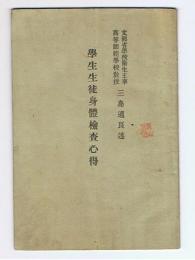 文部省學校衛生主事
高等師範學校教授
三島通良述
學生生徒身體檢査心得